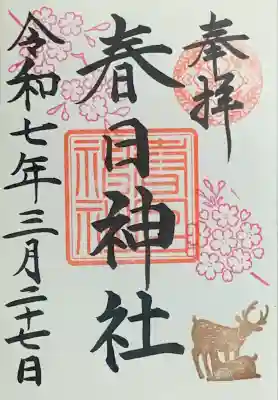 奉拝
春日神社
令和七年三月二十七日
春日
神社